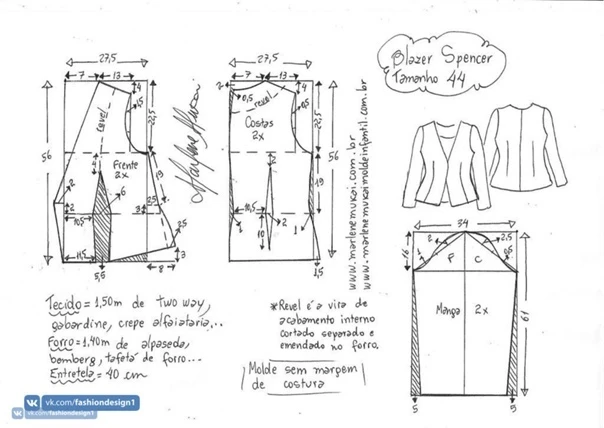 27,5
7
13
4
0,5
revel
22,5
56
Frente
2x
19
2
2
6
10,5
3
2,5
2,5
11,5
5,5
8
3
Marlene Mukai
27,5
7
13
2
4
0,5
revel
Costas
2x
22,5
56
2
19
10,5
10
2
1
1
1,5
www.marlenemukai.com.br
www.marlenemukaimoldeinfantil.com.br
Blazer Spencer
Tamanho 44
34
16
2
2,5
1
F
C
Manga 2x
61
5
5
Tecido = 1,50m de two way,
gabardine, crepe alfaiataria...
Forro = 1,40m de alpaseda,
bemberg, tafetá de forro...
Entretela = 40 cm
*Revel é a vira de
acabamento interno
cortado separado e
emendado no forro.
Molde sem margem
de costura
vk.com/fashiondesign1
vk.com/fashiondesign1